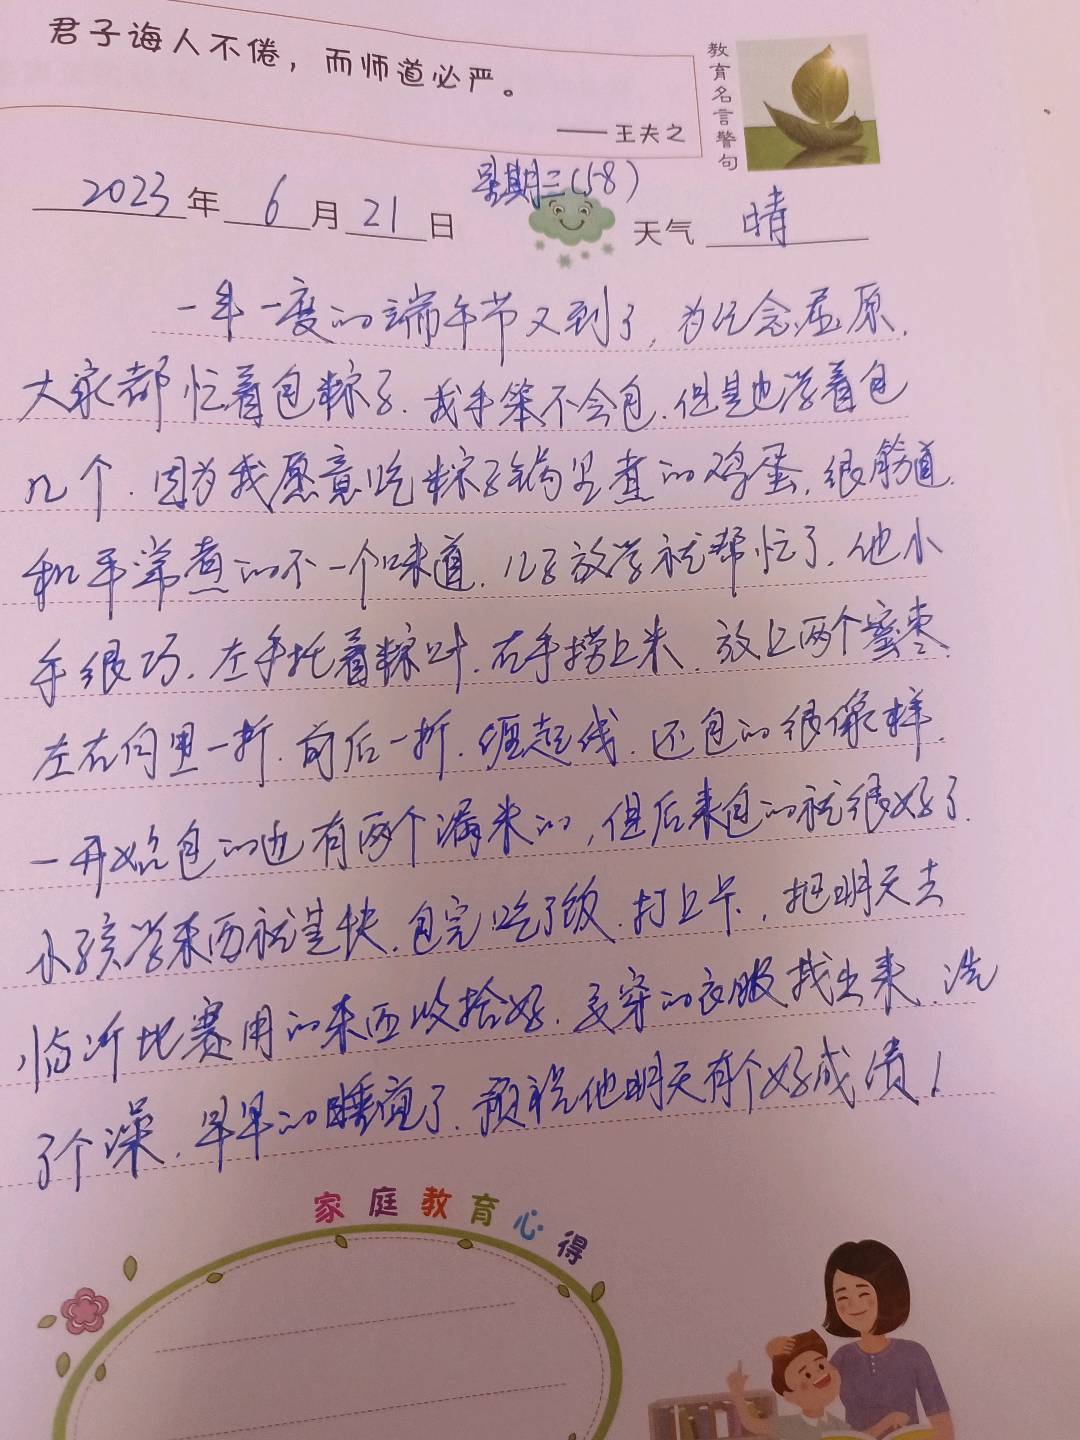 君子诲人不倦，而师道必严。
——王夫之
教育名言警句
星期三(58)
2023年6月21日 天气 晴
一年一度的端午节又到了,为纪念屈原,
大家都忙着包粽子.我手笨不会包.但是也学着包
几个.因为我愿意吃粽子锅里煮的鸡蛋,很筋道.
和平常煮的不一个味道.儿子放学就帮忙了.他小
手很巧.左手托着粽叶.右手捞上米.放上两个蜜枣.
左右向里一折.前后一折.缠起线.还包的很像样.
一开始包的也有两个漏米的,但后来包的就很好了.
小孩学东西就是快.包完吃了饭.打上卡,把明天去
临沂比赛用的东西收拾好.要穿的衣服找出来.洗
了个澡.早早的睡觉了.预祝他明天有个好成绩!
家庭教育心得